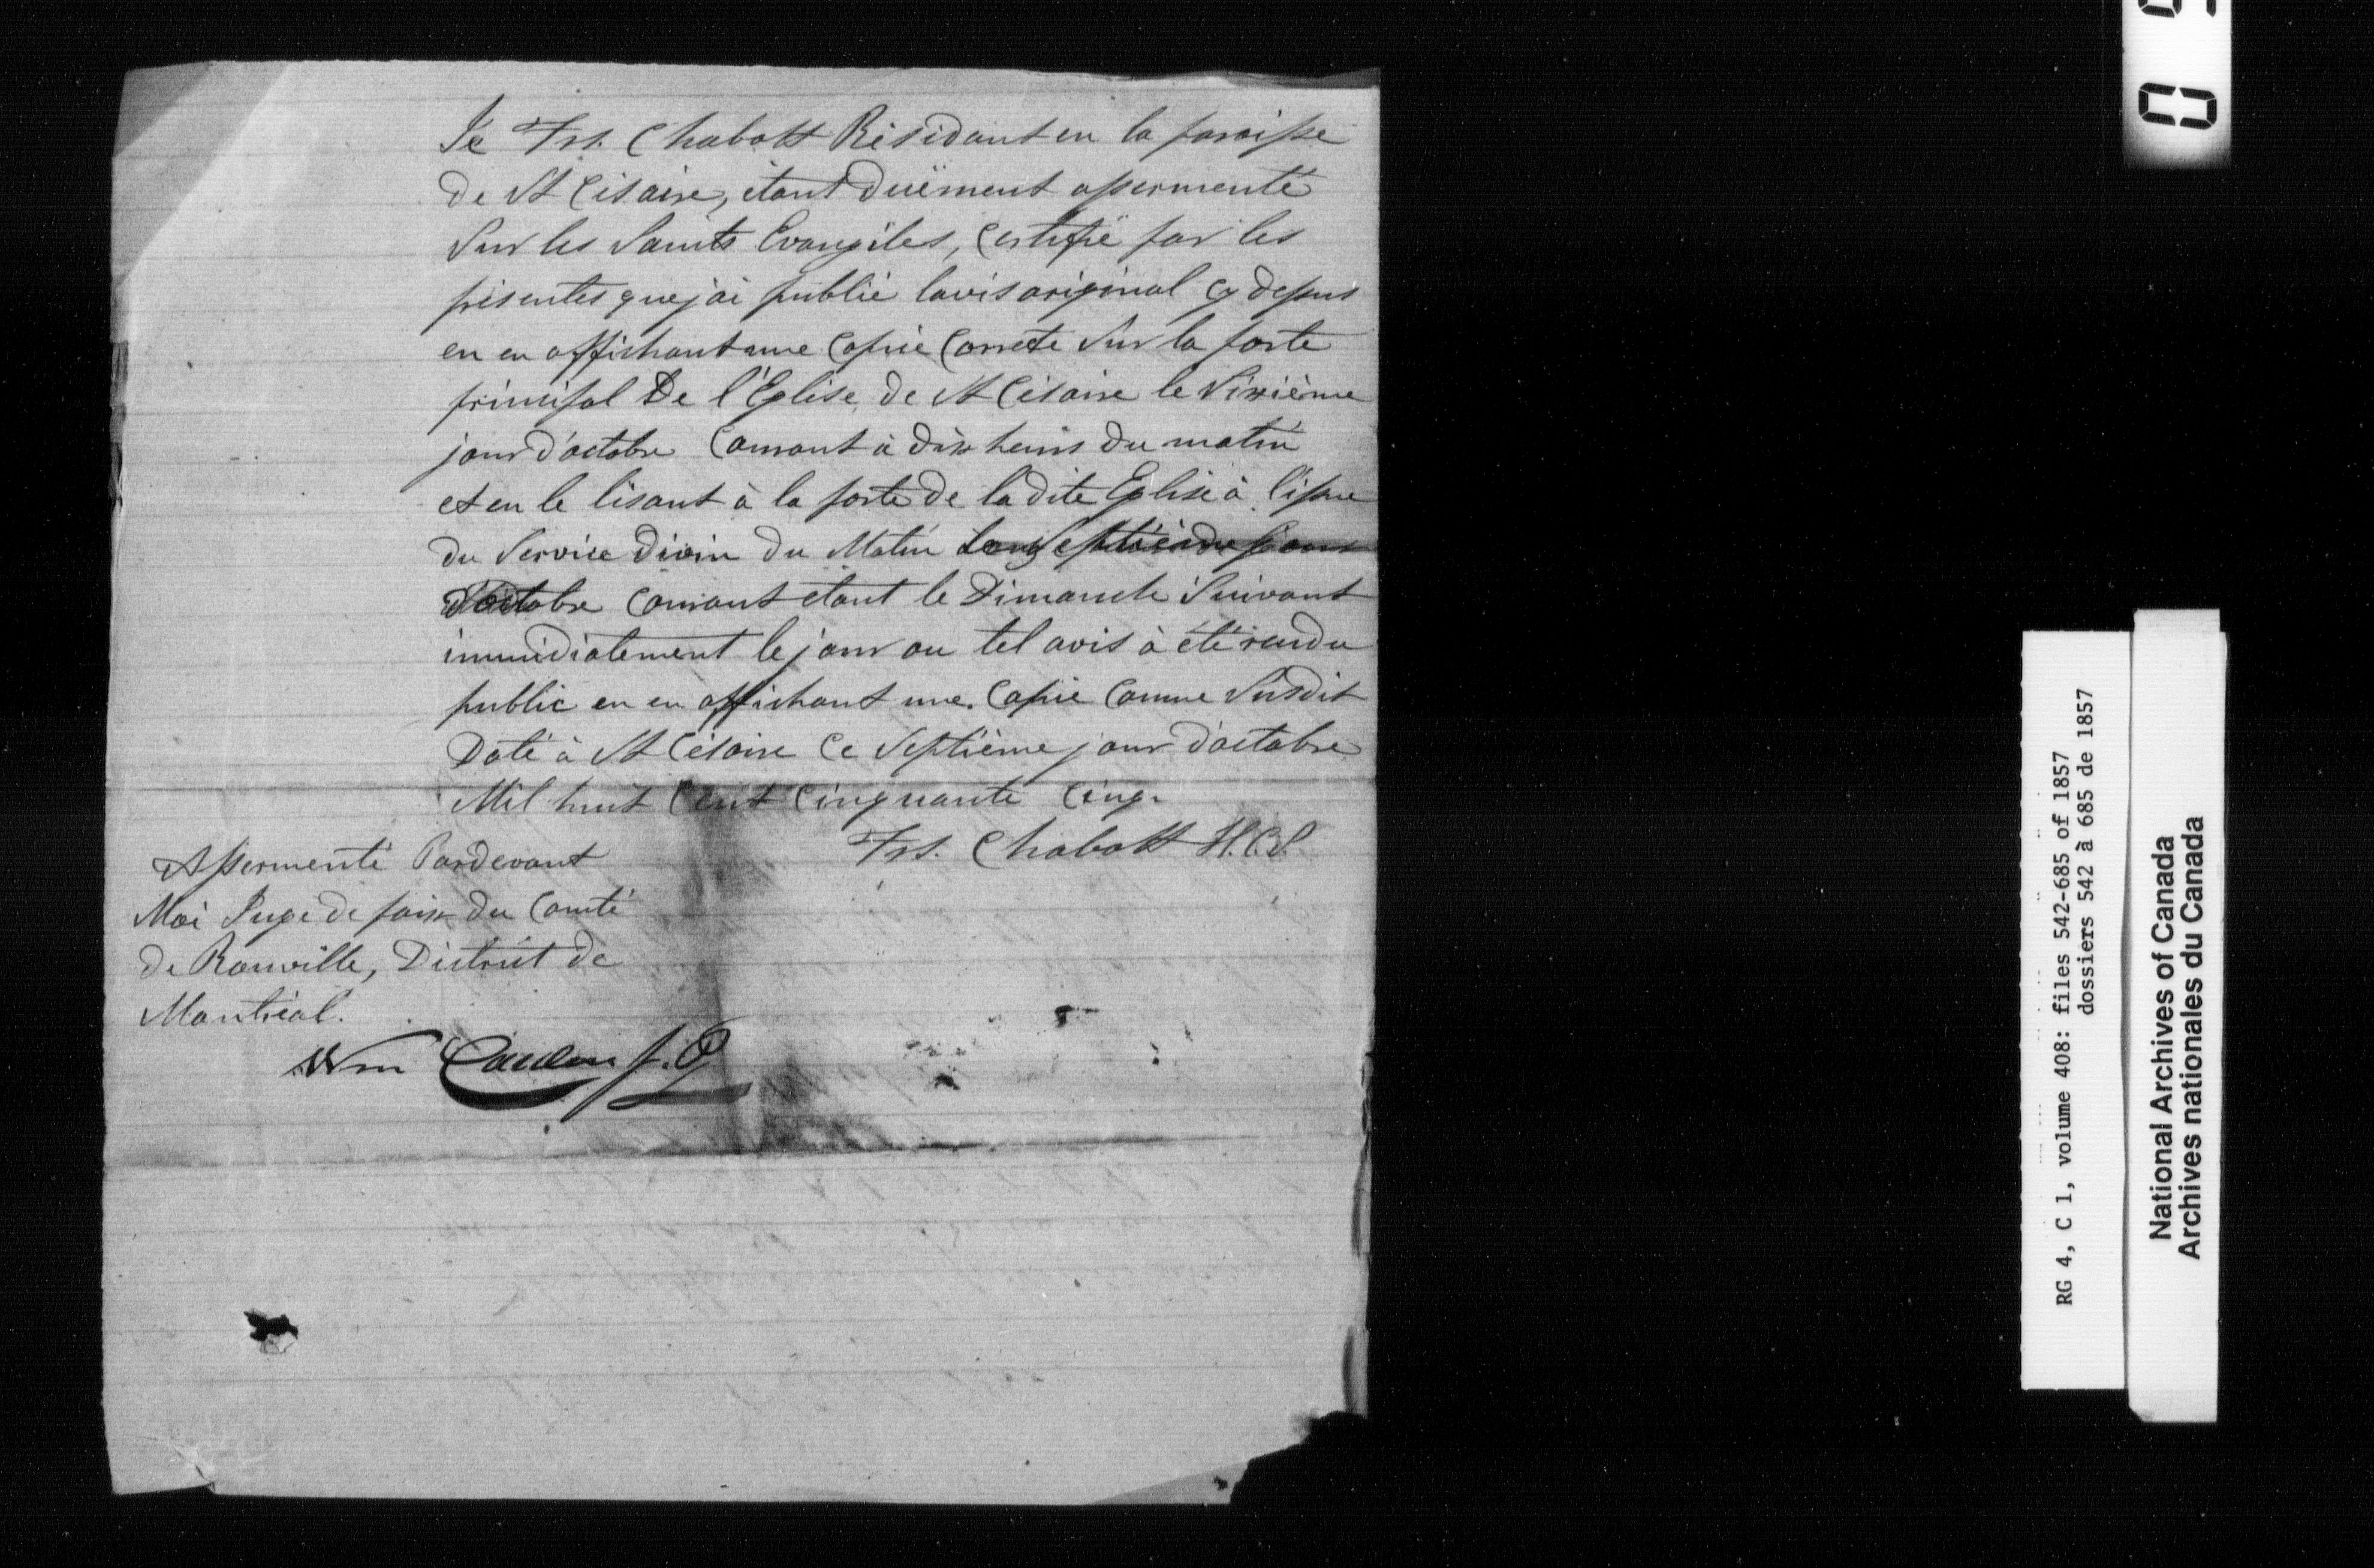 Je Frs. Chabott Résidant en la paroisse
de St Césaire, étant duëment assermenté
Sur les Saints Evangiles, Certifie par les
présentes que j'ai publié lavis original cy dessus
en en affichant une Copie Correte Sur la porte
principal De l'Eglise de St Césaire le Sixième
jour d'octobre Courant à dix heurs du matin
et en le lisant à la porte de la dite Eglise à l'issue
du Service divin du Matin Le Septième jour
d'octobre Courant étant le Dimanche Suivant
immédiatement le jour ou tel avis à été rendu
public en en affichant une Copie Comme Susdit
Daté à St Césaire Ce Septième jour d'octobre
Mil huit Cent Cinquante Cinq.
Frs. Chabott H.C.S.
Assermenté Pardevant
Moi Juge de paix du Comté
de Rouville, District de
Montréal.
Wm J.P.
RG 4, C 1, volume 408: files 542-685 of 1857
dossiers 542 à 685 de 1857
National Archives of Canada
Archives nationales du Canada